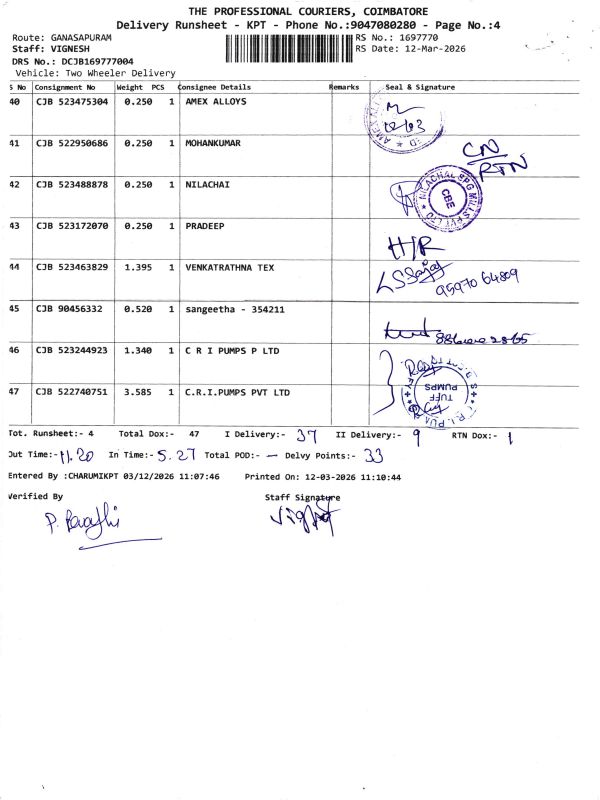 THE PROFESSIONAL COURIERS, COIMBATORE
Delivery Runsheet - KPT - Phone No.:9047080280 - Page No.:4
Route: GANASAPURAM
RS No.: 1697770
Staff: VIGNESH
RS Date: 12-Mar-2026
DRS No.: DCJB169777004
Vehicle: Two Wheeler Delivery
S No Consignment No Weight PCS Consignee Details Remarks Seal & Signature
40 CJB 523475304 0.250 1 AMEX ALLOYS
41 CJB 522950686 0.250 1 MOHANKUMAR CN RTN
42 CJB 523488878 0.250 1 NILACHAI NILACHAL SPG MILLS PVT LTD CBE
43 CJB 523172070 0.250 1 PRADEEP H/R
44 CJB 523463829 1.395 1 VENKATRATHNA TEX 95970 64809
45 CJB 90456332 0.520 1 sangeetha - 354211
46 CJB 523244923 1.340 1 C R I PUMPS P LTD
47 CJB 522740751 3.585 1 C.R.I.PUMPS PVT LTD TUFF PUMPS
Tot. Runsheet:- 4 Total Dox:- 47 I Delivery:- 37 II Delivery:- 9 RTN Dox:- 1
Out Time:- 11.20 In Time:- 5.27 Total POD:- — Delvy Points:- 33
Entered By :CHARUMIKPT 03/12/2026 11:07:46 Printed On: 12-03-2026 11:10:44
Verified By Staff Signature